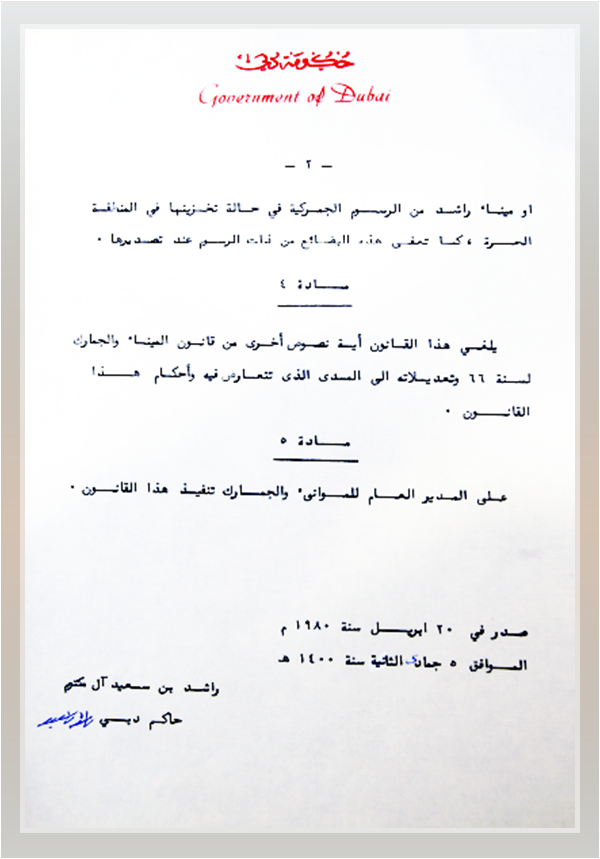 حكومة دبي
Government of Dubai
- ٢ -
او ميناء راشد من الرسم الجمركية في حالة تخزينها في المنطقة
الحرة ، كما تعفى هذه البضائع من ذات الرسم عند تصديرها .
مادة ٤
يلغي هذا القانون أية نصوص أخرى من قانون الميناء والجمارك
لسنة ٦٦ وتعديلاته الى المدى الذى تتعارض فيه وأحكام هذا
القانون .
مادة ٥
على المدير العام للموانىء والجمارك تنفيذ هذا القانون .
صدر في ٢٠ ابريل سنة ١٩٨٠ م
الموافق ٥ جمادى الثانية سنة ١٤٠٠ هـ
راشد بن سعيد آل مكتوم
حاكم دبي